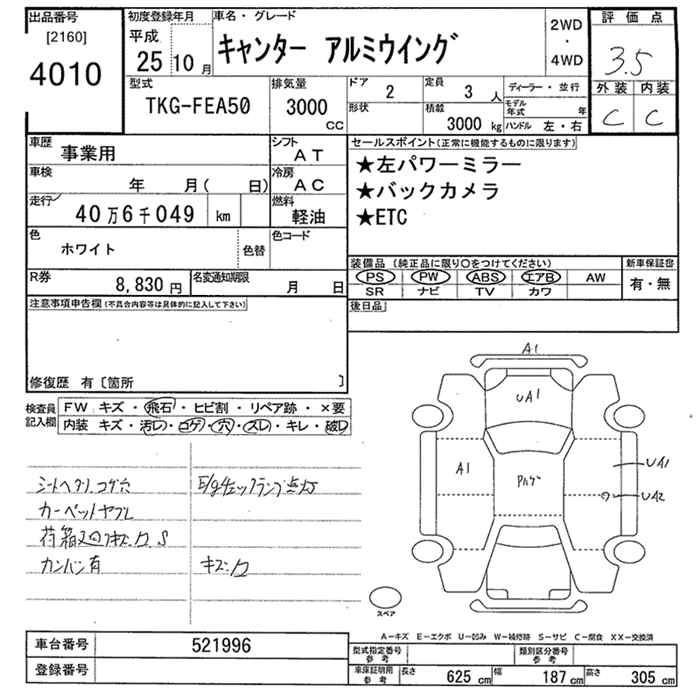 出品番号
[2160]
4010
初度登録年月
平成
25 10月
車名・グレード
キャンター アルミウイング
2WD
・
4WD
評価点
3.5
外装 内装
C C
型式
TKG-FEA50
排気量
3000
CC
ドア
2
定員
3 人
形状
積載
3000 kg
ディーラー・並行
モデル年式 年
ハンドル 左・右
車歴 事業用
シフト AT
車検 年 月( 日)
冷房 AC
走行 40万6千049 km
燃料 軽油
色 ホワイト 色替
色コード
R券 8,830 円
名変通知期限 月 日
セールスポイント(正常に機能するものに限ります)
★左パワーミラー
★バックカメラ
★ETC
装備品 (純正品に限り○をつけてください)
PS PW ABS エアB AW
SR ナビ TV カワ
新車保証書
有・無
後日品
注意事項申告欄(不具合内容等は具体的に記入して下さい)
修復歴 有〔箇所 〕
検査員記入欄
FW キズ・飛石・ヒビ割・リペア跡・×要
内装 キズ・汚レ・コゲ・穴・スレ・キレ・破レ
シートヘタリ、コゲ穴
カーペットヤブレ
S
カンバン有
E/gチェックランプ点灯
キズ
A1
UA1
A1
UA1
UA2
スペア
A-キズ E-エクボ U-凹み W-補修跡 S-サビ C-腐食 XX-交換済
車台番号 521996
登録番号
型式指定番号 参考
類別区分番号 参考
車庫証明用 参考
長さ 625 cm 幅 187 cm 高さ 305 cm